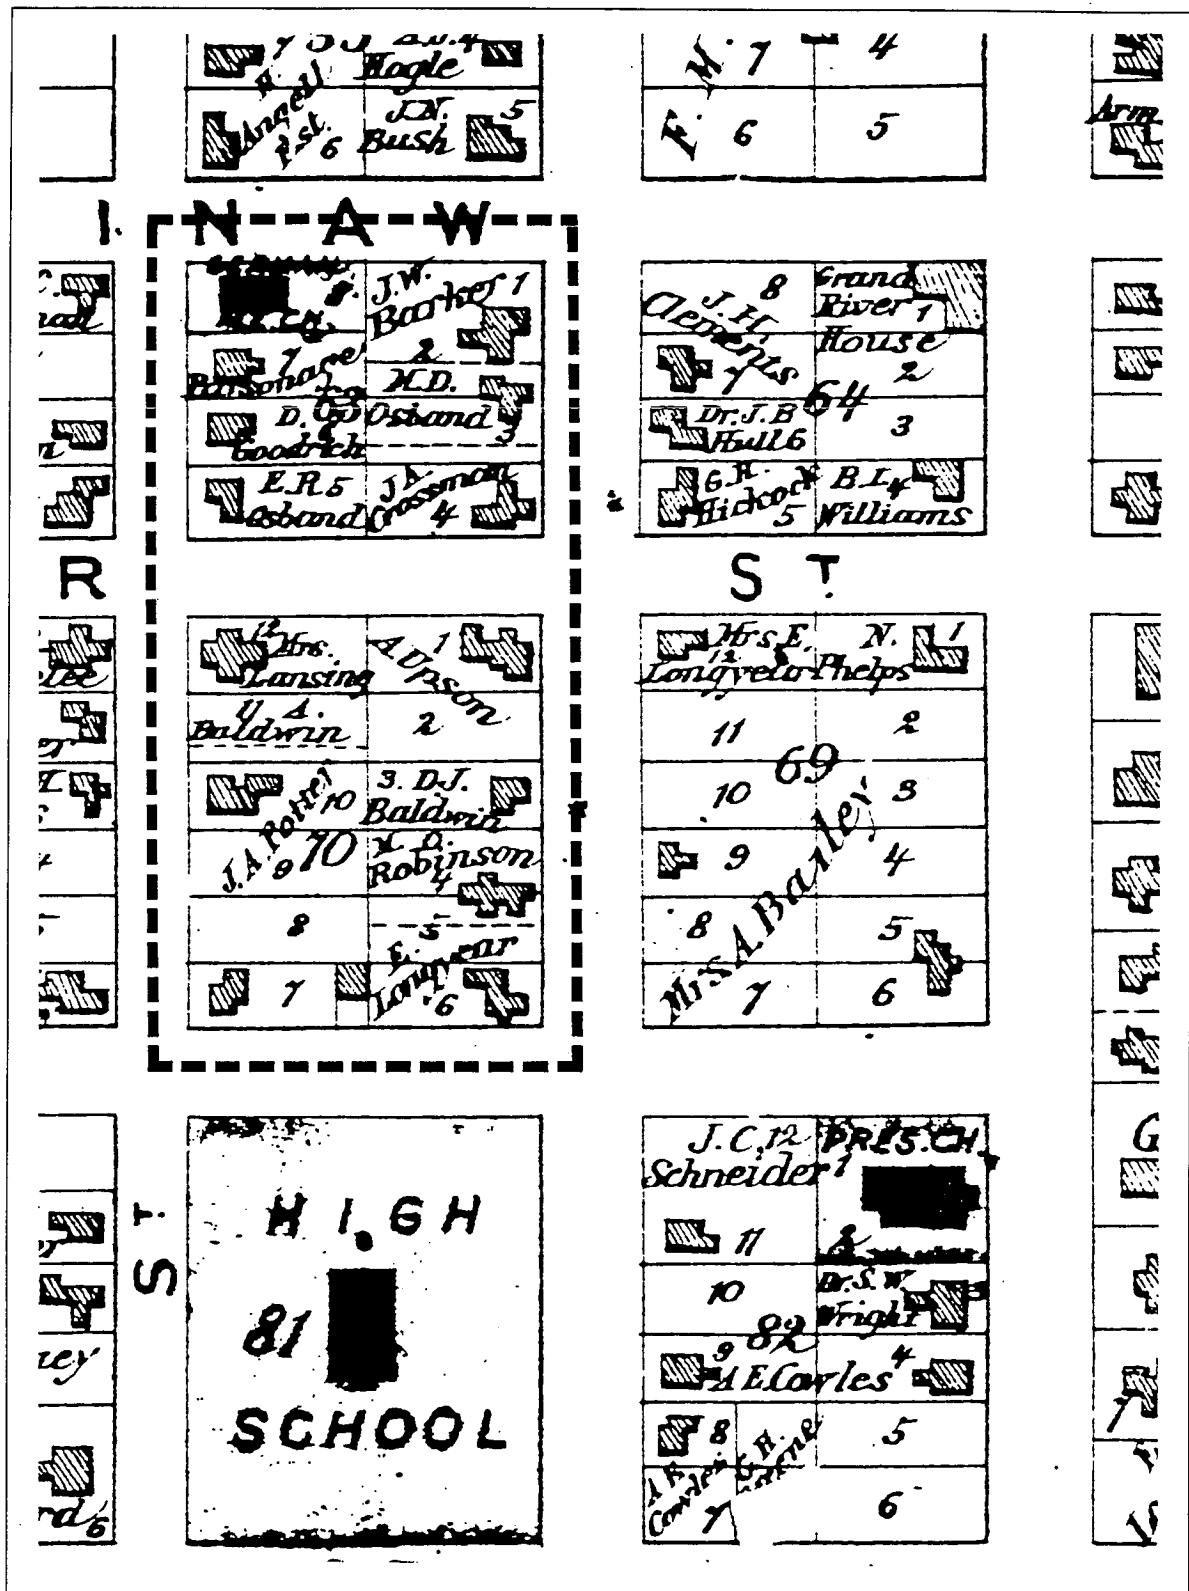 7
H.
Angell
Est.
6
Hogle
J.N.
Bush
5
F. M.
7
4
6
5
Arm
I N A W
8
M.E.CH.
J.W.
Barker
1
2
7
Parsonage
M.D.
Osband
3
D.
Goodrich
6
E.R. 5
Osband
J.A.
Crossman
4
8
J.H.
Clements
7
Grand
River 1
House
2
64
Dr. J. B
Hull 6
3
G.R.
Hickcock
5
B.L.
4
Williams
R
ST
12
Mrs.
Lansing
A Upson
1
11 A.
Baldwin
2
J.A. Potter
10
3. D.J.
Baldwin
9
70
M. D.
Robinson
4
8
E. 5
Longyear
7
6
Mrs. E.
12
Longyear
N. 1
Phelps
11
2
69
10
3
Mrs A Bailey
9
4
8
5
7
6
ST
HIGH
81
SCHOOL
J. C. 12
Schneider
1
PRES. CH.
2
11
10
Dr. S. W.
Wright
3
82
9
A E Cowles
4
8
A E
Cowles
7
G. H.
5
6
G
ney
rd 6